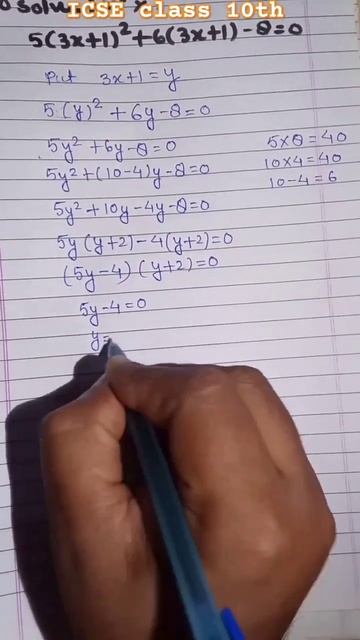 ICSE class 10th
5(3x+1)²+6(3x+1)-8=0
Put 3x+1=y
5(y)²+6y-8=0
5y²+6y-8=0
5y²+(10-4)y-8=0
5y²+10y-4y-8=0
5y(y+2)-4(y+2)=0
(5y-4)(y+2)=0
5y-4=0
y=
5×8=40
10×4=40
10-4=6